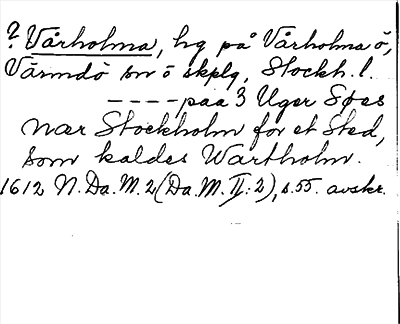 ? Vårholma, hg på Vårholma ö,
Värmdö sn o skplg, Stockh. l.
----paa 3 Uger Søes
nær Stockholm for et Sted,
som kaldes Wartholm.
1612 N. Da. M. 2 (Da. M. II: 2), s. 55. avskr.